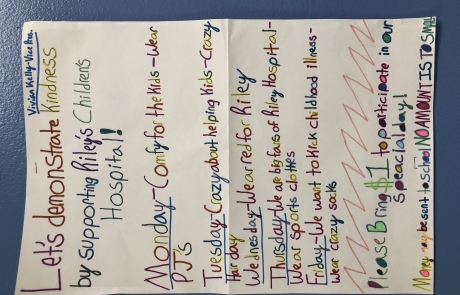 Vivian Kelly-Vice Pres.
Let's demonstrate Kindness
by supporting Riley's Children's
Hospital!
Monday-Comfy for the Kids-Wear
PJ's
Tuesday-Crazy about helping Kids-Crazy
hair day
Wednesday-Wear red for Riley
Thursday-We are big fans of Riley Hospital-
Wear sports clothes
Friday-We want to Kick childhood illness-
wear crazy socks
Please Bring $1 to participate in our
speacial day!
Money may be sent to school NO AMOUNT IS TO SMALL